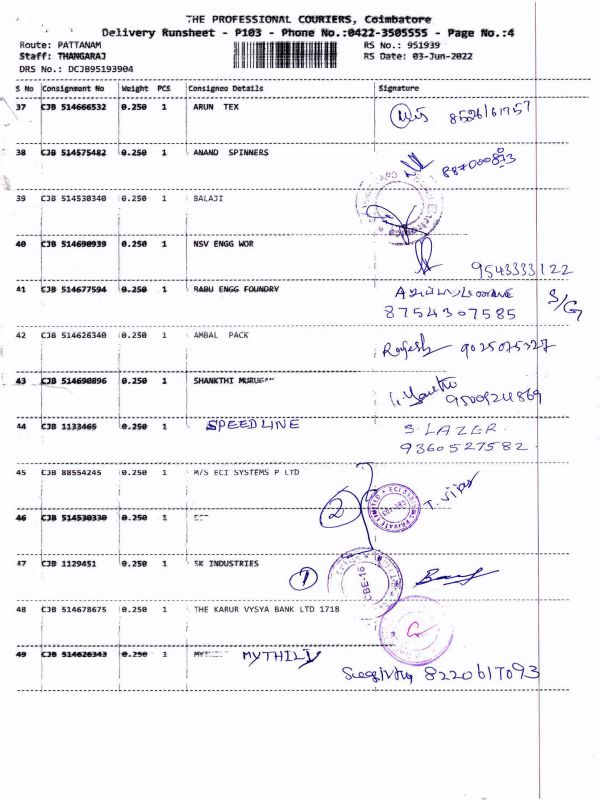 THE PROFESSIONAL COURIERS, Coimbatore
Delivery Runsheet - P103 - Phone No.:0422-3505555 - Page No.:4
Route: PATTANAM RS No.: 951939
Staff: THANGARAJ RS Date: 03-Jun-2022
DRS No.: DCJB95193904
S No Consignment No Weight PCS Consignee Details Signature
37 CJB 514666532 0.250 1 ARUN TEX
38 CJB 514575482 0.250 1 ANAND SPINNERS
39 CJB 514530340 0.250 1 BALAJI
40 CJB 514690939 0.250 1 NSV ENGG WOR
9543333122
41 CJB 514677594 0.250 1 BABU ENGG FOUNDRY
8754307585 S/G
42 CJB 514626340 0.250 1 AMBAL PACK Rajesh 9025075327
43 CJB 514690896 0.250 1 SHANKTHI MURUGAN
9500924869
44 CJB 1133465 0.250 1 SPEEDLINE S. LAZER.
9360527582
45 CJB 88554245 0.250 1 M/S ECI SYSTEMS P LTD
46 CJB 514530330 0.250 1 2
47 CJB 1129451 0.250 1 SK INDUSTRIES 1 CBE-16
48 CJB 514678675 0.250 1 THE KARUR VYSYA BANK LTD 1718
49 CJB 514626343 0.250 1 MYTHILI
8220617093